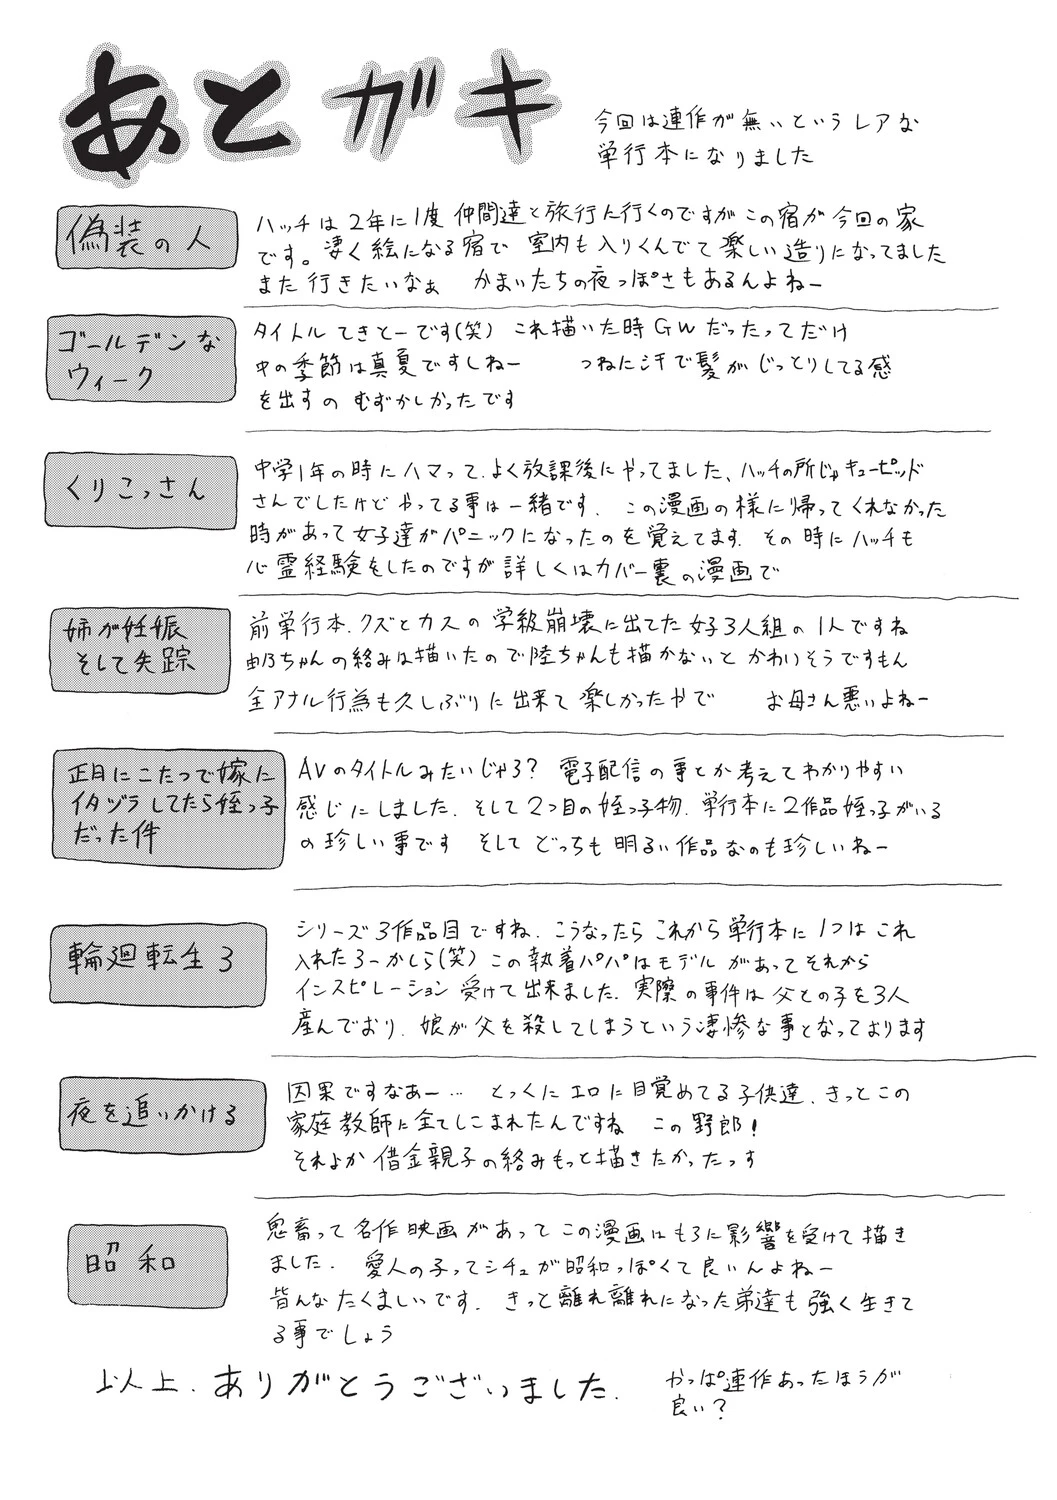 あとガキ
今回は連作が無いというレアな
単行本になりました
偽装の人
ハッチは2年に1度 仲間達と旅行に行くのですが この宿が今回の家
です。凄く絵になる宿で 室内も入りくんでて楽しい造りになってました
また行きたいなぁ かまいたちの夜っぽさもあるんよねー
ゴールデンな
ウィーク
タイトルてきとーです(笑) これ描いた時GWだったってだけ
中の季節は真夏ですしねー つねに汗で髪がじっとりしてる感
を出すの むずかしかったです
くりこっさん
中学1年の時にハマって、よく放課後にやってました、ハッチの所じゃキューピッド
さんでしたけど やってる事は一緒です、この漫画の様に帰ってくれなかった
時があって女子達がパニックになったのを覚えてます、その時にハッチも
心霊経験をしたのですが詳しくはカバー裏の漫画で
姉が妊娠
そして失踪
前単行本、クズとカスの学級崩壊に出てた女子3人組の1人ですね
ちゃんの絡みは描いたので陸ちゃんも描かないと かわいそうですもん
全アナル行為も久しぶりに出来て楽しかったやで お母さん悪いよねー
正月にこたつで嫁に
イタヅラしてたら姪っ子
だった件
AVのタイトルみたいじゃろ? 電子配信の事とか考えてわかりやすい
感じにしました、そして2つ目の姪っ子物、単行本に2作品姪っ子がいる
の珍しい事です そして どっちも明るい作品なのも珍しいねー
輪廻転生3
シリーズ3作品目ですね、こうなったら これから単行本に1つは これ
入れたろーかしら(笑) この執着パパはモデルがあってそれから
インスピレーション受けて出来ました、実際の事件は父との子を3人
産んでおり、娘が父を殺してしまうという凄惨な事となっております
夜を追いかける
因果ですなあー… とっくにエロに目覚めてる子供達、きっとこの
家庭教師に全てしこまれたんですね この野郎!
それよか借金親子の絡みもっと描きたかったっす
昭和
鬼畜って名作映画があって この漫画はもろに影響を受けて描き
ました、愛人の子ってシチュが昭和っぽくて良いんよねー
皆んなたくましいです、きっと離れ離れになった弟達も強く生きて
る事でしょう
以上、ありがとうございました、
やっぱ連作あったほうが
良い?